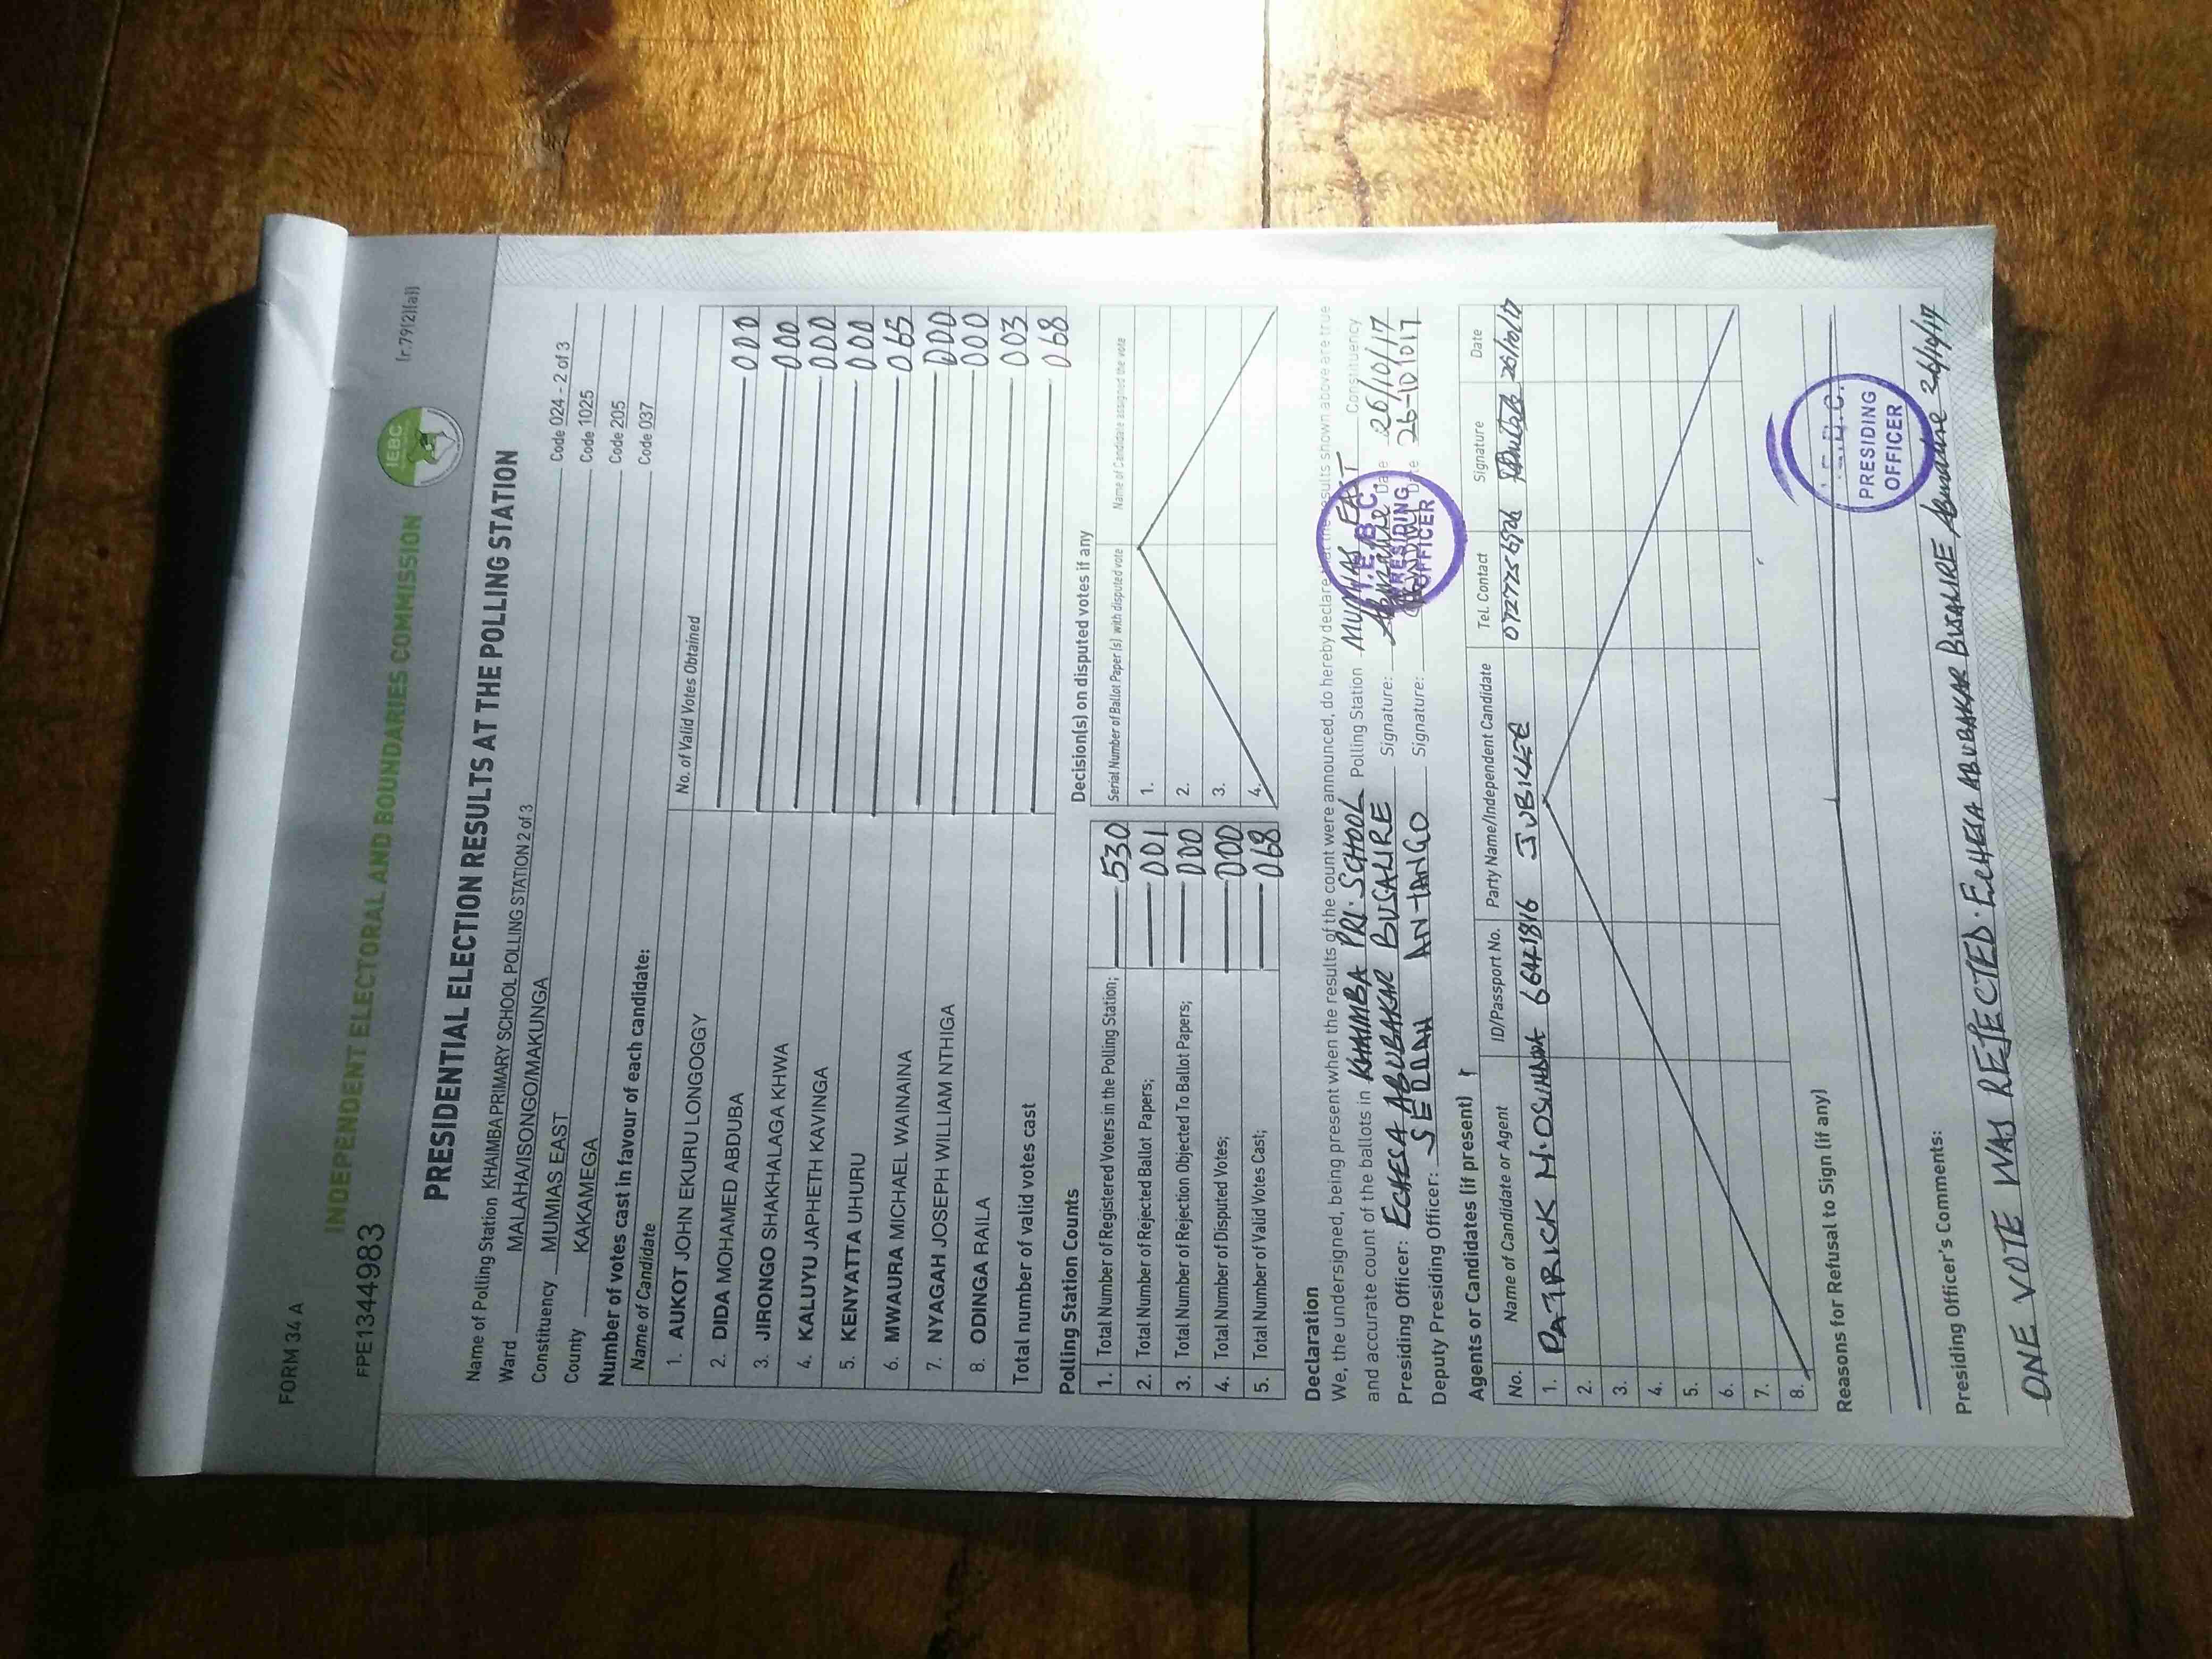 FORM 34 A
INDEPENDENT ELECTORAL AND BOUNDARIES COMMISSION
IEBC
(r.79(2)(a))
FPE1344983
PRESIDENTIAL ELECTION RESULTS AT THE POLLING STATION
Name of Polling Station KHAIMBA PRIMARY SCHOOL POLLING STATION 2 of 3 Code 024 - 2 of 3
Ward MALAHA/ISONGO/MAKUNGA Code 1025
Constituency MUMIAS EAST Code 205
County KAKAMEGA Code 037
Number of votes cast in favour of each candidate:
Name of Candidate No. of Valid Votes Obtained
1. AUKOT JOHN EKURU LONGOGGY 000
2. DIDA MOHAMED ABDUBA 000
3. JIRONGO SHAKHALAGA KHWA 000
4. KALUYU JAPHETH KAVINGA 000
5. KENYATTA UHURU 065
6. MWAURA MICHAEL WAINAINA 000
7. NYAGAH JOSEPH WILLIAM NTHIGA 000
8. ODINGA RAILA 003
Total number of valid votes cast 068
Polling Station Counts
1. Total Number of Registered Voters in the Polling Station; 530
2. Total Number of Rejected Ballot Papers; 001
3. Total Number of Rejection Objected To Ballot Papers; 000
4. Total Number of Disputed Votes; 000
5. Total Number of Valid Votes Cast; 068
Decision(s) on disputed votes if any
Serial Number of Ballot Paper (s) with disputed vote Name of Candidate assigned the vote
1.
2.
3.
4.
Declaration
We, the undersigned, being present when the results of the count were announced, do hereby declare that the results shown above are true
and accurate count of the ballots in KHAIMBA PRI. SCHOOL Polling Station MUMIAS EAST Constituency
Presiding Officer: ECHESA ABUBAKAR BUSALIRE Signature: Date 26/10/17
Deputy Presiding Officer: SEDDAH Signature: Date
I.E.B.C.
PRESIDING
OFFICER
Agents or Candidates (if present)
No. Name of Candidate or Agent ID/Passport No. Party Name/Independent Candidate Tel. Contact Signature Date
1. PATRICK JUBILEE
2.
3.
4.
5.
6.
7.
8.
Reasons for Refusal to Sign (if any)
I.E.B.C.
PRESIDING
OFFICER
Presiding Officer's Comments:
ONE VOTE WAS REJECTED. ECHESA ABUBAKAR BUSALIRE 26/10/17